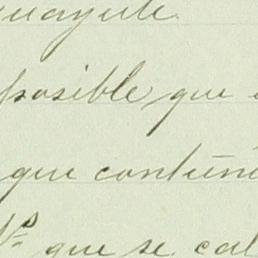 guayule.
posible que
que contien
Nº que se cal